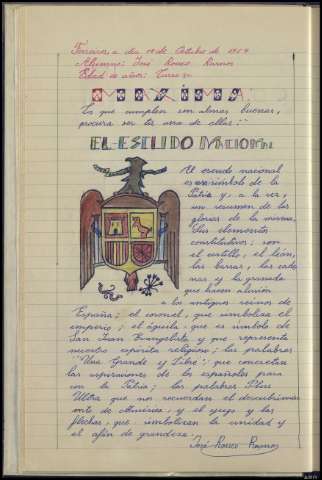 a día 14 de Octubre de 1954
Alumno: José Roseo Ramos
Edad de años: Trece
MAXIMA
Los que cumplen son almas buenas,
procura ser tú una de ellas:
EL ESCUDO NACIONAL
El escudo nacional
es símbolo de la
Patria y, a la vez,
un resumen de las
glorias de la misma.
Sus elementos
constitutivos; son
el castillo, el león,
las barras, las cade
nas y la granada
que hacen alusión
a los antiguos reinos de
España; el coronel, que simboliza el
imperio; el águila, que es símbolo de
San Juan Evangelista y que representa
nuestro espíritu religioso; las palabras
"Una, Grande y Libre", que concretan
las aspiraciones de los españoles para
con la Patria; las palabras Plus
Ultra que nos recuerdan el descubrimi
ento de América; y el yugo y las
flechas, que simbolizan la unidad y
el afán de grandeza.
José Roseo Ramos